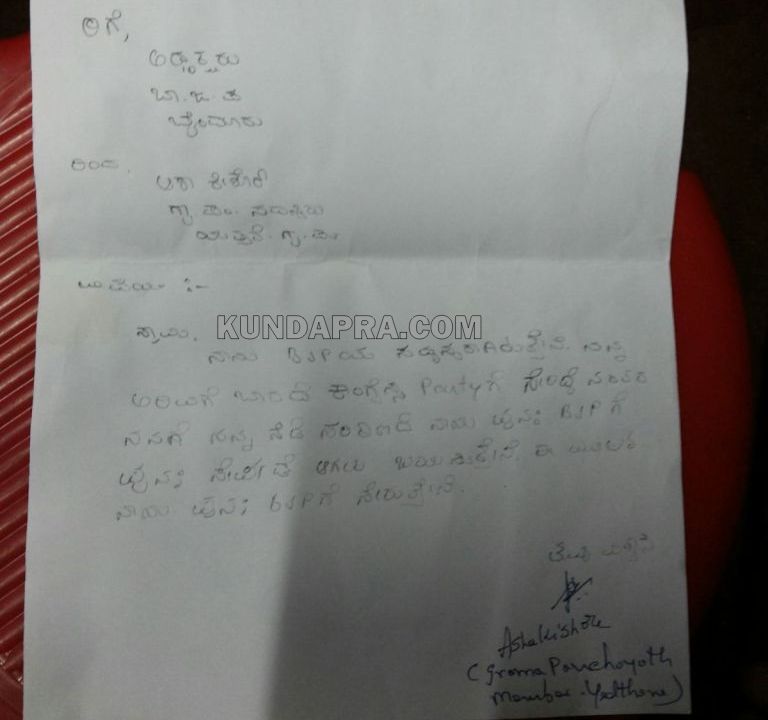 ರಿಗೆ,
ಅಧ್ಯಕ್ಷರು
ಬಾ.ಜ.ಪ
ಬೈಂದೂರು
ರಿಂದ,
ಆಶಾ ಕಿಶೋರ್
ಗ್ರಾ. ಪಂ. ಸದಸ್ಯರು
ಯಡ್ತರೆ. ಗ್ರಾ. ಪಂ
ವಿಷಯ :-
ಸ್ವಾಮಿ,
KUNDAPRA.COM
ನಾನು BJPಯ ನನ್ನ
ಅರಿವಿಗೆ ಬಾರದೆ ಕಾಂಗ್ರೆಸ್ Partyಗೆ ಸೇರಿದ್ದೆ ನಂತರ
ನನಗೆ ನನ್ನ ನಾನು ಪುನಃ BJP ಗೆ
ಪುನಃ ಬಯಸುತ್ತೇನೆ. ಈ ಮೂಲಕ
ನಾನು ಪುನಃ BJPಗೆ ಸೇರುತ್ತೇನೆ.
ತಮ್ಮ ವಿಶ್ವಾಸಿ
Ashakishore
(Grama Panchayoth
Member - Yedthare)